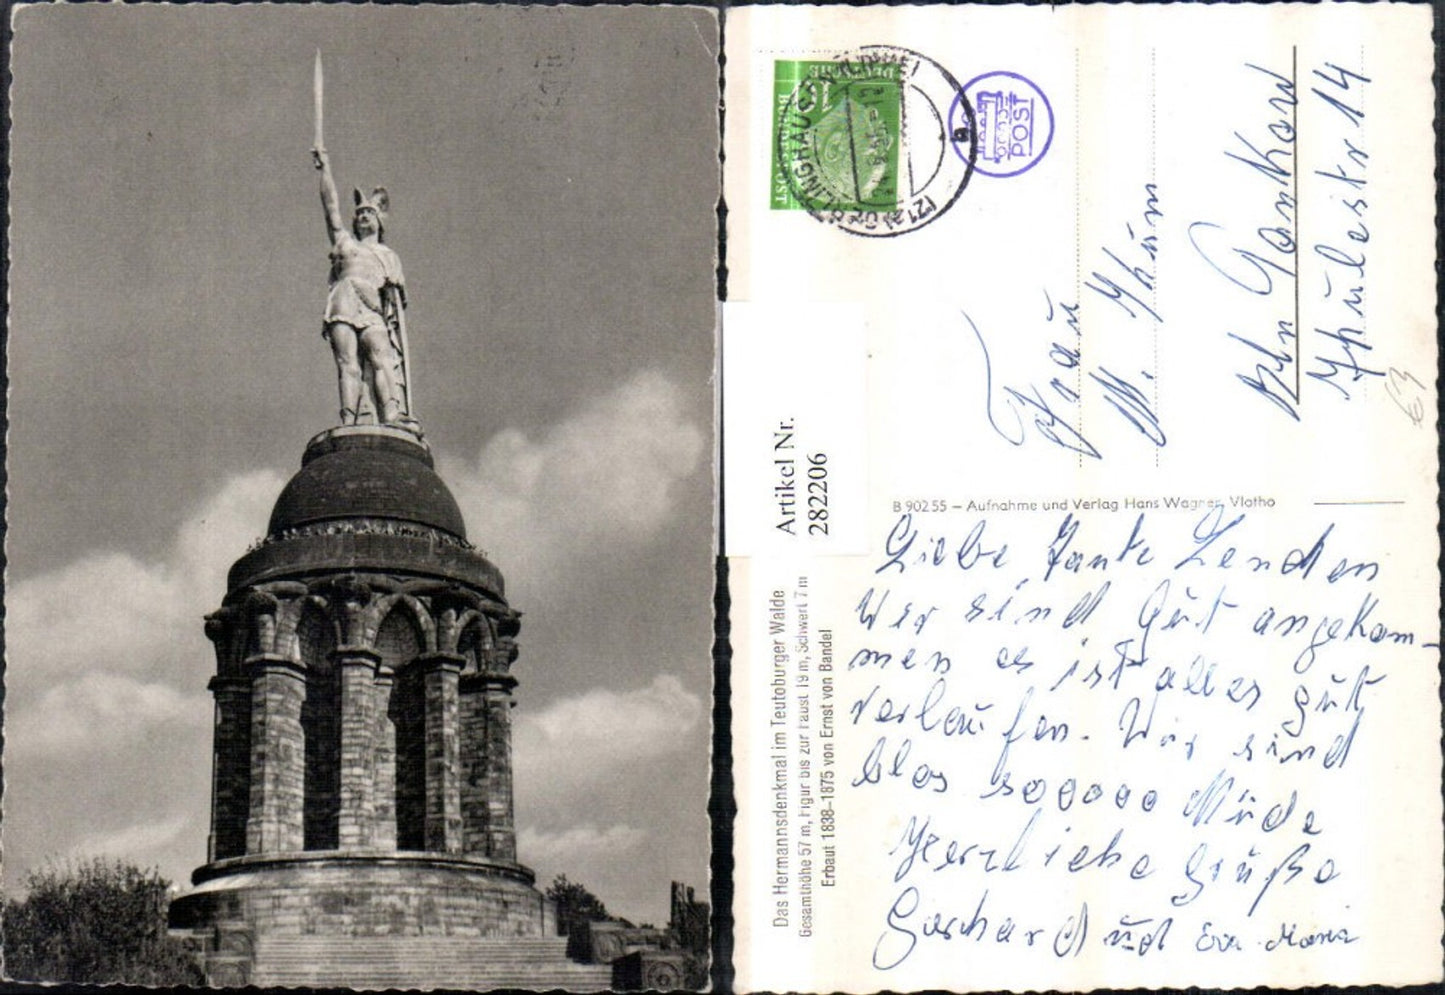 Artikel Nr.
282206
Das Hermannsdenkmal im Teutoburger Walde
Gesamthöhe 57 m, Figur bis zur Faust 19 m, Schwert 7 m
Erbaut 1838–1875 von Ernst von Bandel
B 902 55 – Aufnahme und Verlag Hans Wagner, Vlotho
Liebe Tante Lenchen
Wir sind gut angekom-
men es ist alles gut
verlaufen. Wir sind
blos soooo Müde
Herzliche Grüße
Gerhard und Eva-Maria
Frau
M. Thüm
Bln Pankow
Thulestr 14
POST
€3